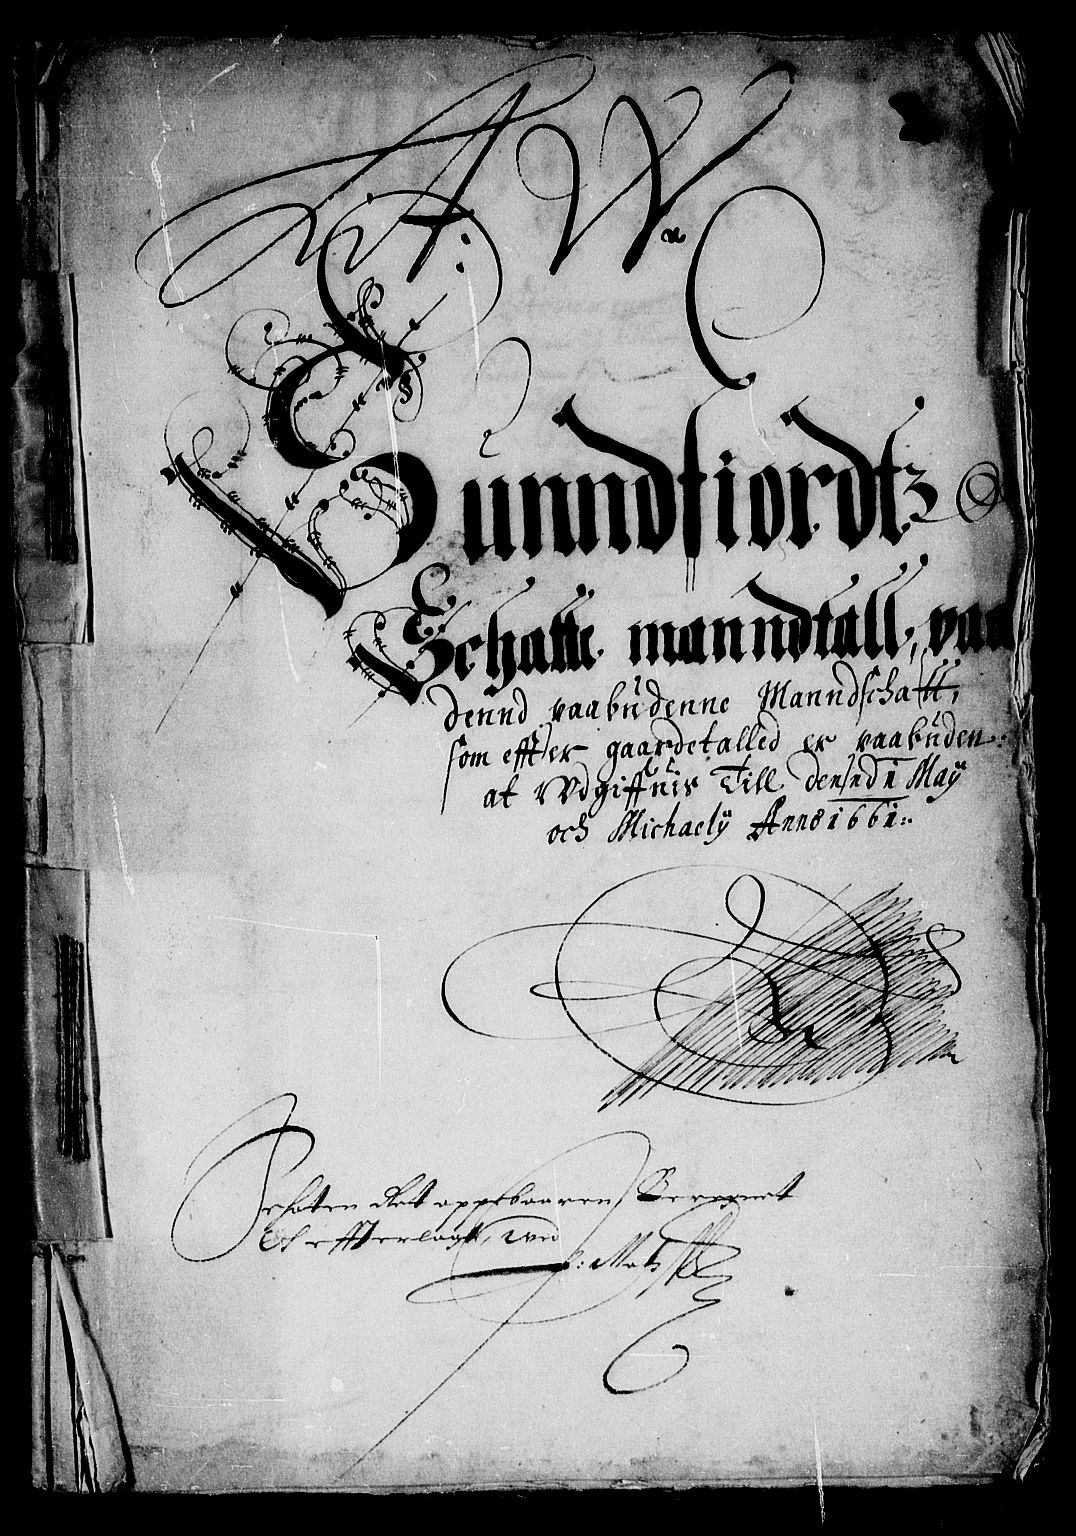 A: W:
Sunndfiordtz
Schatte manndtall, paa
dennd paabudenne Manndschatt,
som effter gaardetalled er paabuden:
at Udgiffuis Till den 1 May
och Michaely Anno 1661:
Ret
effterlagt,